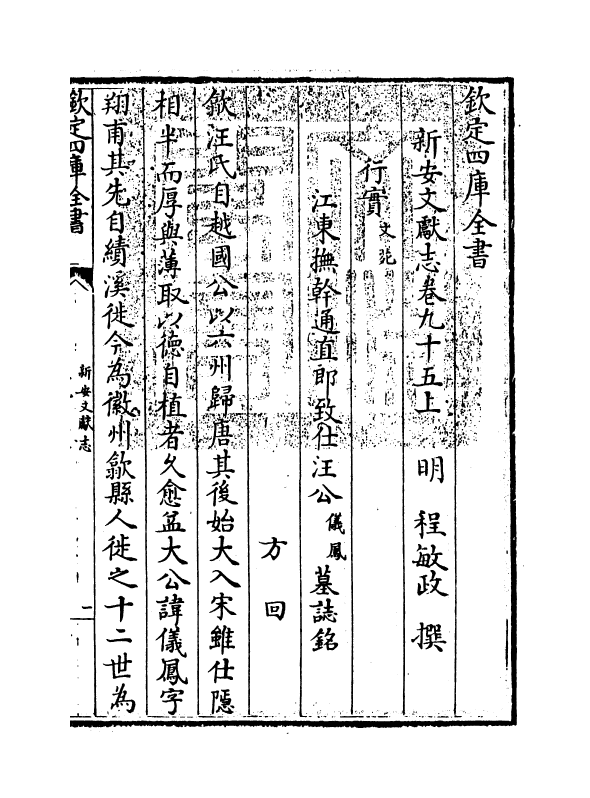 欽定四庫全書
新安文獻志卷九十五上　明　程敏政　撰
行實
江東撫幹通直郎致仕汪公儀鳳墓誌銘
方回
歙汪氏自越國公以六州歸唐其後始大入宋雖仕隱
相半而厚與薄取以德自植者久愈盆大公諱儀鳳字
翔甫其先自績溪徙今為徽州歙縣人徙之十二世為
欽定四庫全書
新安文獻志
一